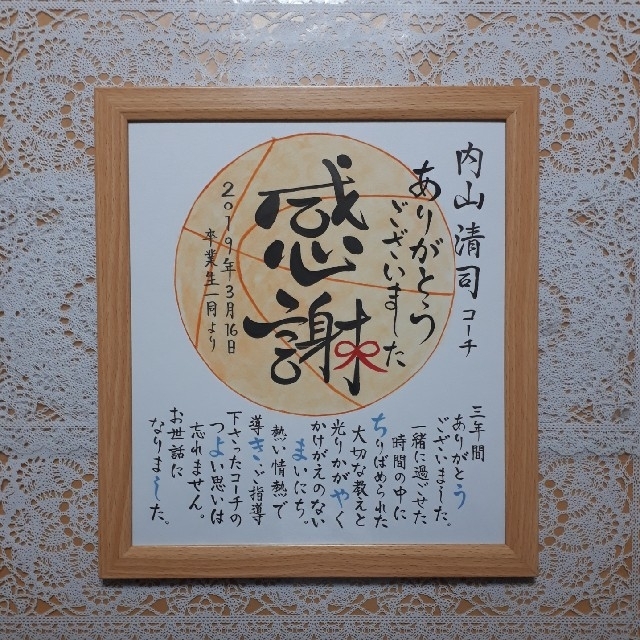 内山清司コーチ
ありがとう
ございました
感謝
2019年3月16日
卒業生一同より
三年間
ありがとう
ございました。
一緒に過ごせた
時間の中に
ちりばめられた
大切な教えと
光りかがやく
かけがえのない
まいにち。
熱い情熱で
導きご指導
下さったコーチの
つよい思いは
忘れません。
お世話に
なりました。